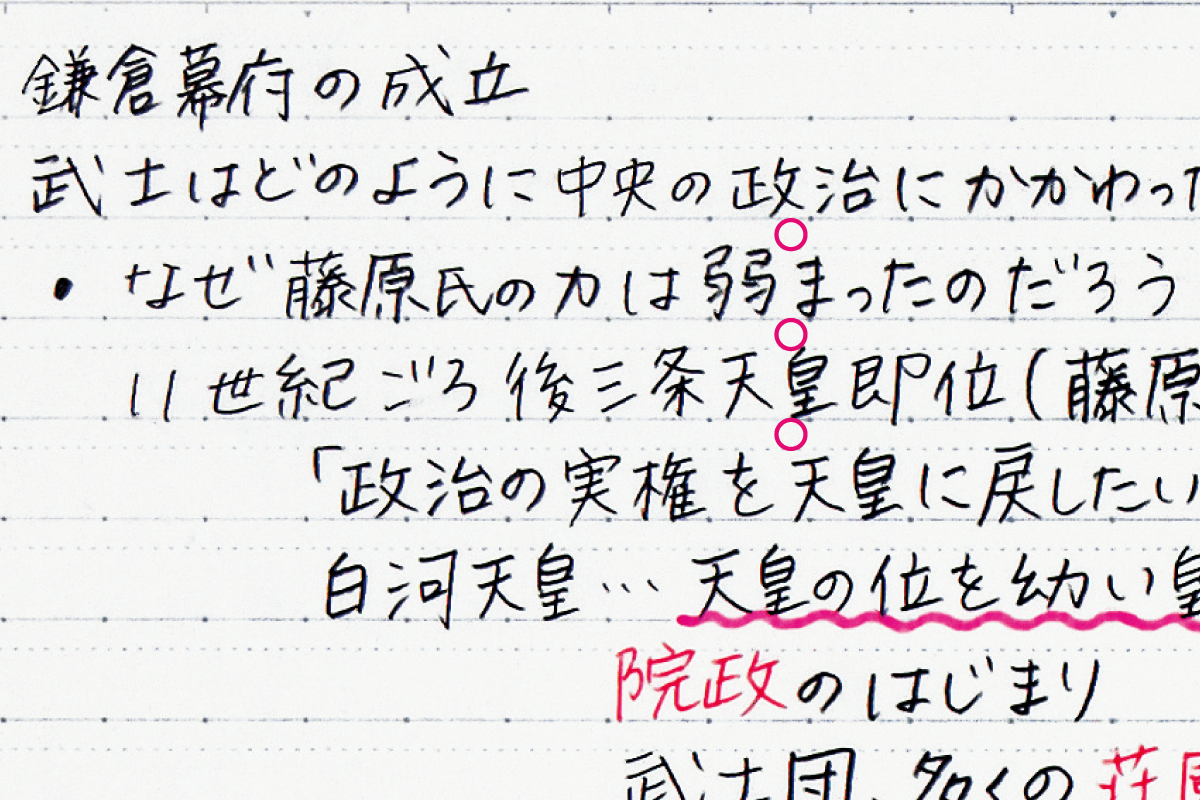 鎌倉幕府の成立
武士はどのように中央の政治にかかわった
・なぜ藤原氏の力は弱まったのだろう
11世紀ごろ後三条天皇即位(藤原
「政治の実権を天皇に戻したい
白河天皇…天皇の位を幼い皇
院政のはじまり
武士団、多くの荘園